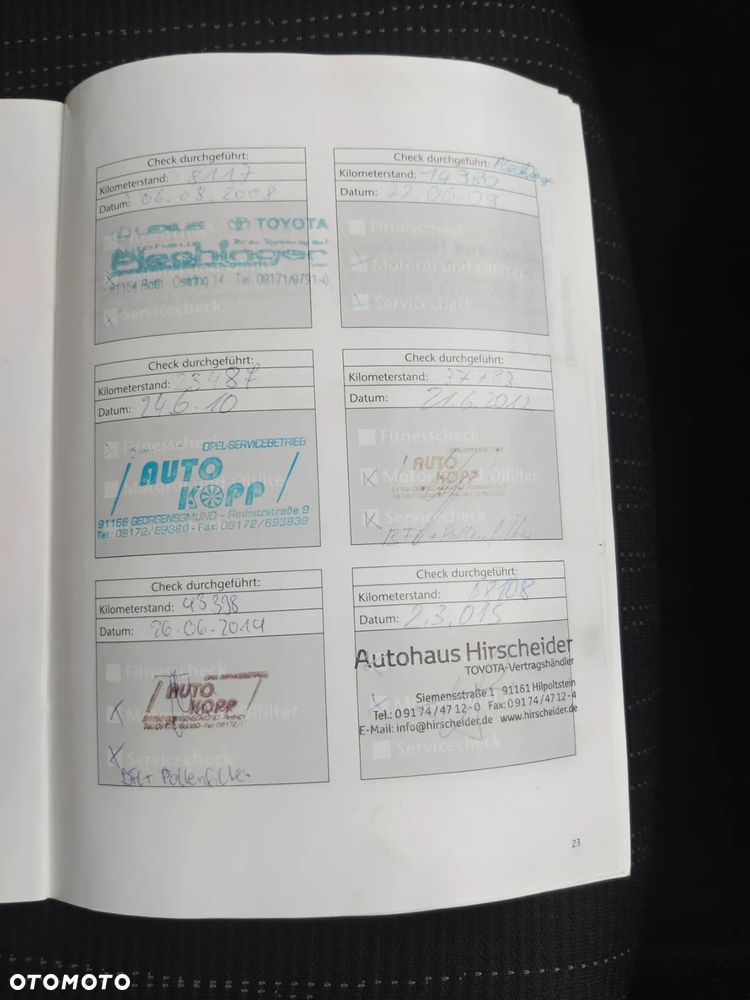 Check durchgeführt:
Kilometerstand: 8117
Datum: 06.08.2008
LEXUS TOYOTA
Autohaus
91154 Roth Ostring 14 · Tel. 09171/9791-0
Servicecheck
Check durchgeführt:
Kilometerstand: 14980
Datum: 22.06.09
Fitnesscheck
Motoröl und Ölfilter
Servicecheck
Check durchgeführt:
Kilometerstand: 23487
Datum: 24.6.10
Fitnesscheck
OPEL-SERVICEBETRIEB
AUTO
KOPP
91166 GEORGENSGMÜND - Rednitzstraße 9
Tel.: 09172/69380 - Fax: 09172/693838
Check durchgeführt:
Kilometerstand: 37783
Datum: 21.6.2012
Fitnesscheck
AUTO
KOPP
Ölfilter
Servicecheck
+ Pollenfilter
Check durchgeführt:
Kilometerstand: 43398
Datum: 26.06.2014
Fitnesscheck
OPEL-SERVICEBETRIEB
AUTO
KOPP
Ölfilter
Servicecheck
+ Pollenfilter
Check durchgeführt:
Kilometerstand:
Datum: 2.3.015
Autohaus Hirscheider
TOYOTA-Vertragshändler
Siemensstraße 1 91161 Hilpoltstein
Tel.: 0 91 74 / 47 12-0 Fax: 0 91 74 / 47 12-4
E-Mail: info@hirscheider.de www.hirscheider.de
Servicecheck
23
OTOMOTO